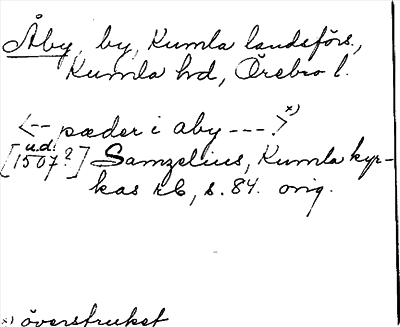 Åby, by, Kumla landsförs.,
Kumla hd, Örebro l.
<-- pæder i aby --->x)
u.d.
[1507?] Samzelius, Kumla kyr-
kas rb, s. 84. orig.
x) överstruket